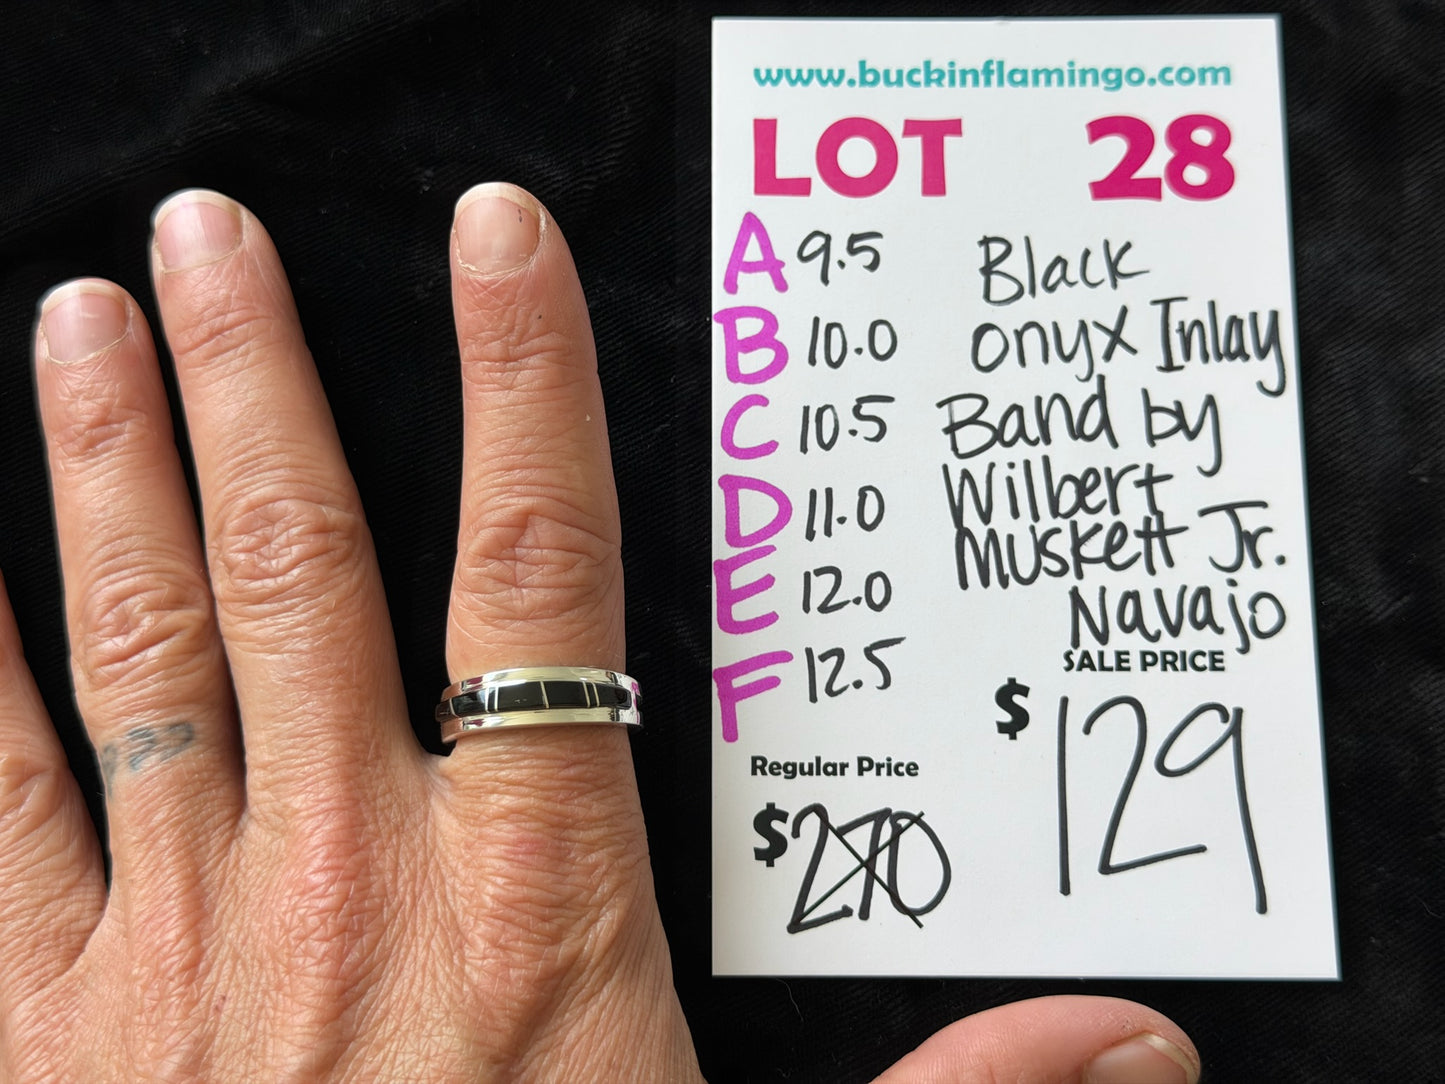 www.buckinflamingo.com
LOT 28
A 9.5
B 10.0
C 10.5
D 11.0
E 12.0
F 12.5
Black
onyx Inlay
Band by
Wilbert
Muskett Jr.
Navajo
SALE PRICE
$129
Regular Price
$270